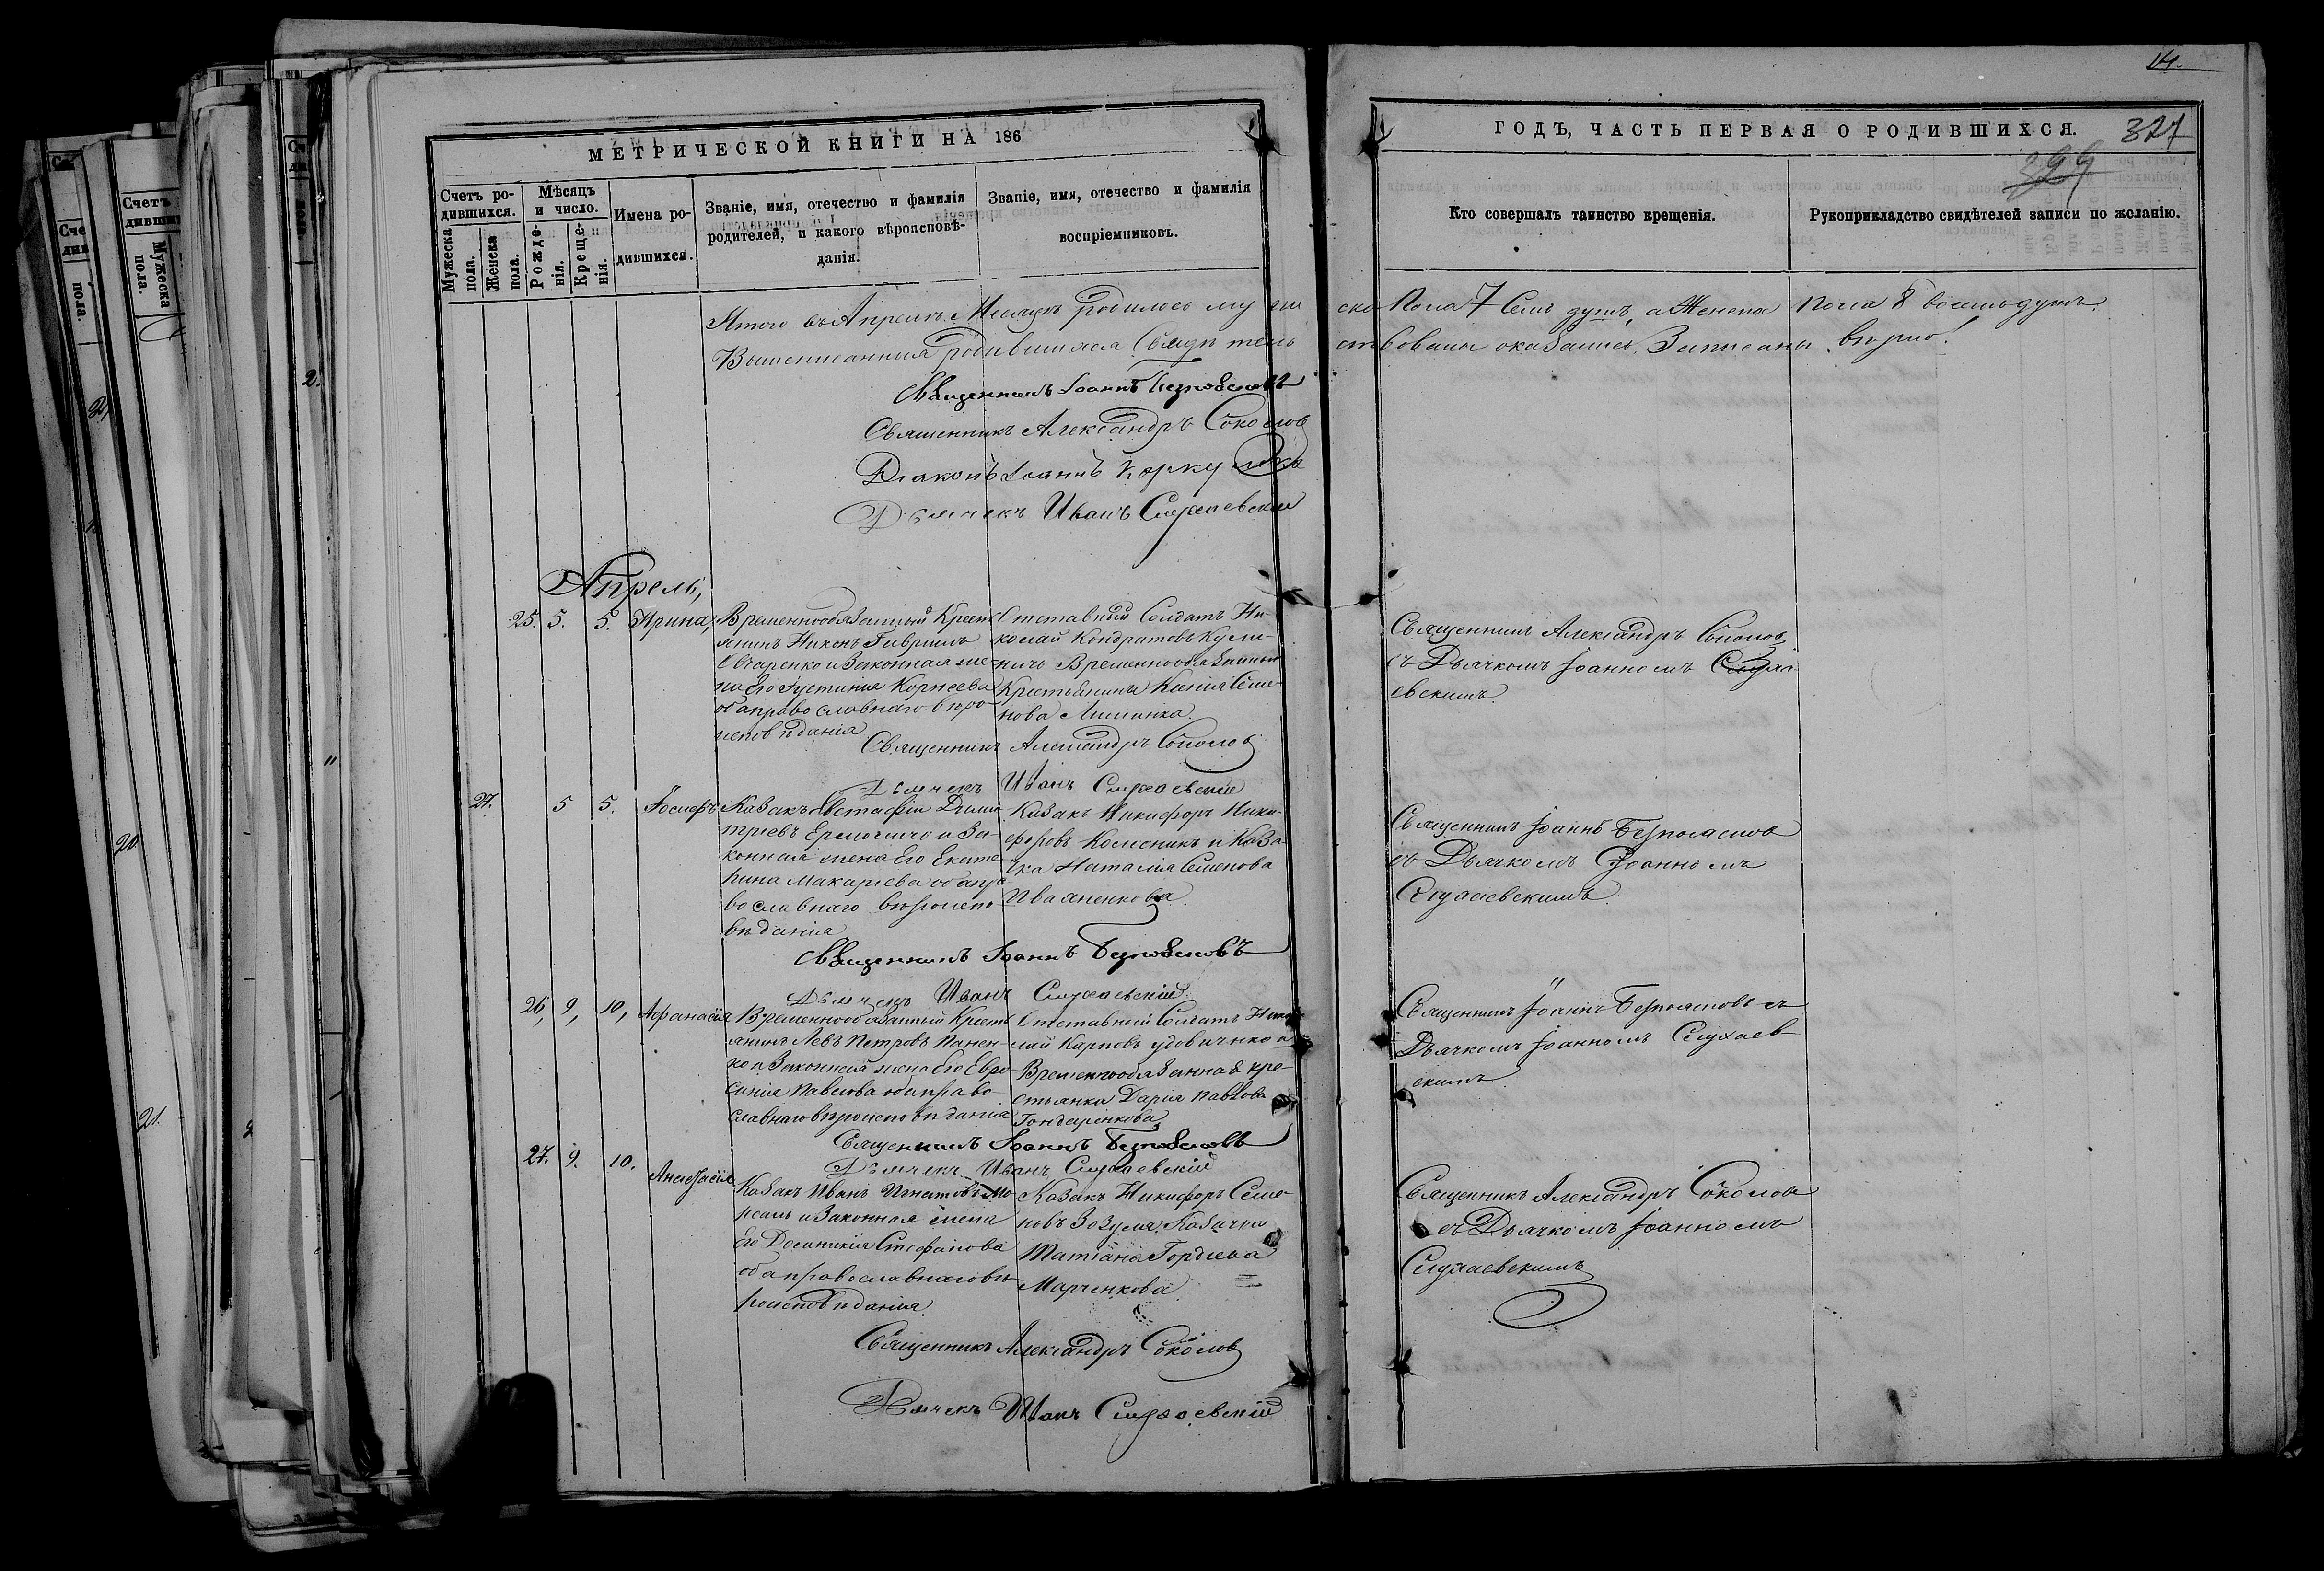 14.
МЕТРИЧЕСКОЙ КНИГИ НА 186
ГОДЪ, ЧАСТЬ ПЕРВАЯ О РОДИВШИХСЯ.
327
Счетъ родившихся.
Мѣсяцъ и число.
Имена родившихся.
Званіе, имя, отечество и фамилія родителей, и какого вѣроисповѣданія.
Званіе, имя, отечество и фамилія воспріемниковъ.
Кто совершалъ таинство крещенія.
Рукоприкладство свидѣтелей записи по желанію.
Мужеска пола.
Женска пола.
Рожденія.
Крещенія.
Итого въ Апрелѣ Месяцѣ родилось муже ска Пола 7 Семь душъ, а Женска Пола 8 восемь душъ.
родившияся
ствовали оказались Записаны вѣрно.
Священникъ Іоаннъ Безпоясновъ
Священникъ Александръ Соколов
Діаконъ Іоаннъ
Дьячекъ Иванъ Слухаевскій
Апрель,
25. 5. 5. Ирина,
Временнообязанный Крестьянинъ Никонъ Гавриилъ
Овчаренко и Законная жена
Его Иустинія Корнеева
оба православнаго вѣроисповѣданія
Отставный Солдатъ Николай Кондратовъ
Временнообязанная
Ксенія Семенова
Священникъ Александръ Соколов
съ Дьячкомъ Іоанномъ Слухаевскимъ
Священникъ Александръ Соколов
Дьячекъ Иванъ Слухаевскій
27. 5 5. Іосифъ
Казакъ Евстафій Димитріевъ
Ермо и Законная жена Его Екатерина Макариева оба православнаго вѣроисповѣданія
Казакъ Никифоръ Никифоровъ Колесникъ и Казачка Наталія Семенова
Иваненкова
Священникъ Іоаннъ Безпояснов
съ Дьячкомъ Іоанномъ
Слухаевскимъ
Священникъ Іоаннъ Безпоясновъ
Дьячекъ Иванъ Слухаевскій
26, 9, 10, Афанасія
Временнообязанный Крестьянинъ Левъ Петровъ Паненко и Законная жена Его Евросинія Павлова оба православнаго вѣроисповѣданія
Отставной Солдатъ Николай Карповъ Удовиченко и
Временнообязанная крестьянка Дарія Павлова
Гондаренкова
Священникъ Іоаннъ Безпоясновъ съ
Дьячкомъ Іоанномъ Слухаевскимъ
Священникъ Іоаннъ Безпоясновъ
Дьячекъ Иванъ Слухаевскій
27. 9. 10. Анастасія
Казакъ Иванъ Игнатовъ
и Законная жена
Его Стефанова
оба православнаго вѣроисповѣданія
Казакъ Никифоръ Семеновъ Зозуля, Казачка
Татіана Гордіева
Марченкова
Священникъ Александръ Соколов
съ Дьячкомъ Іоанномъ
Слухаевскимъ
Священникъ Александръ Соколов
Дьячекъ Иванъ Слухаевскій